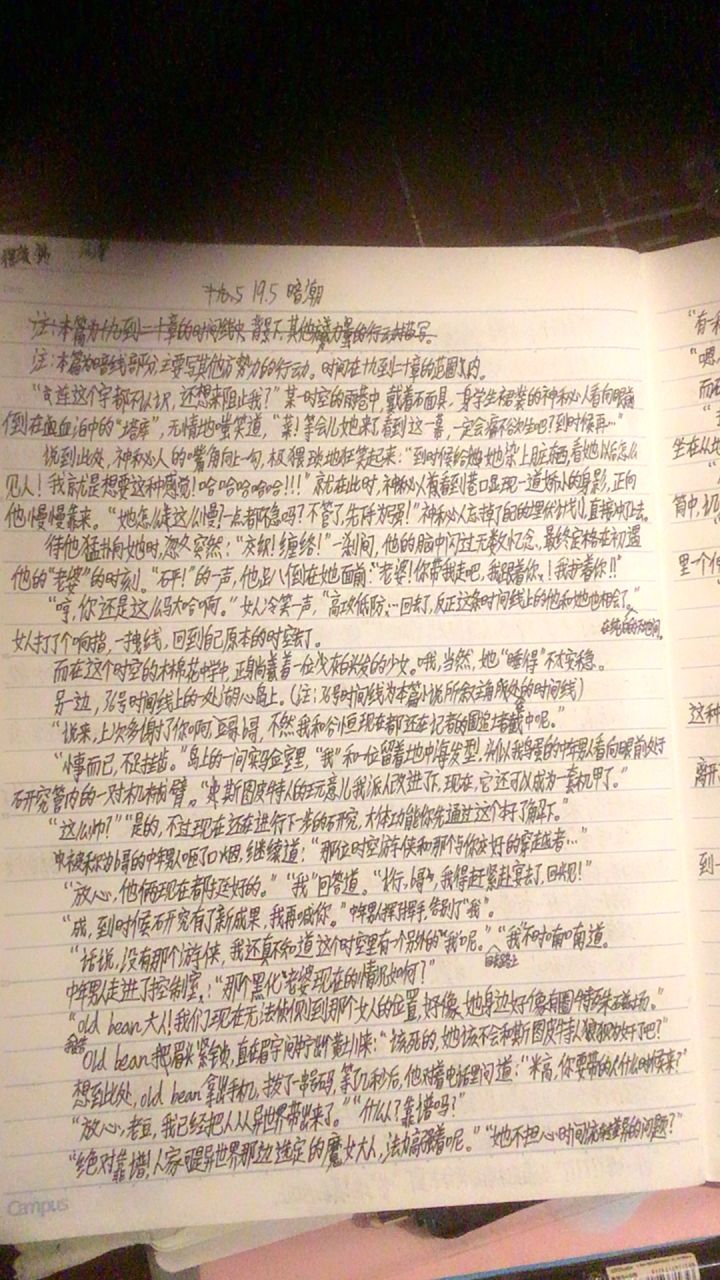 19.5 暗潮
注:本篇为十九到二十章的时间线中,背景下,其他力量的行动描写。
注:本篇为暗线部分,主要写其他方势力的行动。时间在十九到二十章的范围内。
“连这个字都不认识,还想来阻止我?”某一时空的雨巷中,戴着面具,身学生裙装的神秘人看向眼前
倒在血泊中的“塔库”,无情地嗤笑道,“菜!等会儿她来了,看到这一幕,一定会痛不欲生吧?到时候再…”
说到此处,神秘人的嘴角向上一勾,极猥琐地狂笑起来:“到时候给她染上脏东西,看她以后怎么
见人!我就是想要这种感觉!哈哈哈哈哈!!!”就在此时,神秘人看到巷口显现一道娇小的身影,正向
他慢慢靠来。“她怎么走这么慢?一点都不急吗?不管了,先下手为强!”神秘人忘掉了自己的埋伏计划,直接冲了上去。
待他猛扑向她时,忽然:“灵软!缠络!”一刹间,他的脑中闪过无数忆念,最终定格在初遇
他的“老婆”的时刻。“砰!”的一声,他趴倒在她面前:“老婆!你带我走吧,我跟着你!我护着你!!”
“哼,你还是这么大哈啊。”女人冷笑一声,“高攻低防…回去了,反正这条时间线上的他和她也相会了。”
在纯白的天地间。
女人打了个响指,一拽线,回到自己原本的时空去了。
而在这个时空的木棉花中学中,正身尚着一位戈白头发的少女。哦,当然,她“睡得”不太安稳。
另一边,36号时间线上的一处的心岛上。(注:36号时间线为本篇小说所叙主角所处的时间线)
“说来,上次多谢了你啊,豆哥,不然我和谷恒现在都还在记者的围追堵截中呢。”
“小事而已,不足挂齿。”岛上的一间实验室里,“我”和一位留着地中海发型,头似我鸟蛋的中年男人看向眼前处于
研究管内的一对机械臂。“史斯图皮特人的玩意儿我派人改进了下,现在,它还可以成为一套机甲了。”
“这么帅?”“是的,不过现在还在进行下一步的研究,大体功能你先通过这个本子了解下。”
被称为哥的中年男人咂了口烟,继续道:“那位时空游侠和那个与你交好的穿越者…”
“放心,他俩现在都挺好的。”“我”回答道。“行,哥,我得赶紧赴宴去了,回见!”
“成,到时候研究有了新成果,我再喊你。”中年男人挥挥手,告别了“我”。
“话说,没有那个游侠,我还真不知道这个时空里有一个别的“我”呢。”“我”不时喃喃道。
中年男人走进了控制室:“那个黑化“老婆”现在的情况如何?”
“old bean大人!我们现在无法侦测到那个女人的位置,好像她身边好像有圈特殊磁场。”
old bean把眉头紧锁,直在眉宇间拧出黄土川来:“该死的,她该不会和斯图皮特人狼狈为奸了吧?”
想至此处,old bean拿出手机,拨了一串号码,等了几秒后,他对着电话里问道:“米高,你要带的人什么时候来?”
“放心,老豆,我已经把人从异世界带出来了。”“什么人?靠谱吗?”
“绝对靠谱!人家可是异世界那边选定的魔女大人,法力高强着呢。”“她不担心时间流速差异的问题?”
Campus
“有
“嗯
而
坐在从
简中,
里一个
这种
离开
到一